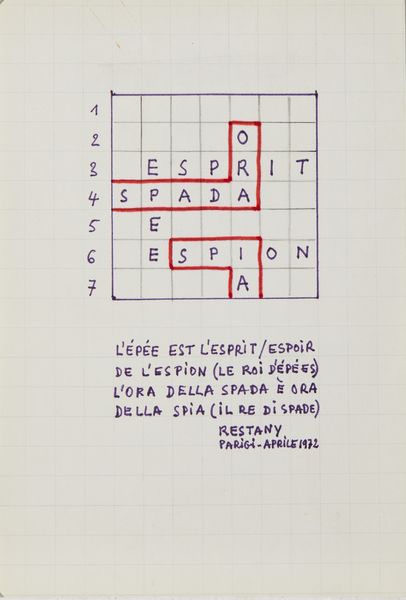 1
2 O
3 E S P R I T
4 S P A D A
5 E
6 E S P I O N
7 A
L'ÉPÉE EST L'ESPRIT/ESPOIR
DE L'ESPION (LE ROI D'ÉPÉES)
L'ORA DELLA SPADA È ORA
DELLA SPIA (IL RE DI SPADE)
RESTANY
PARIGI-APRILE 1972